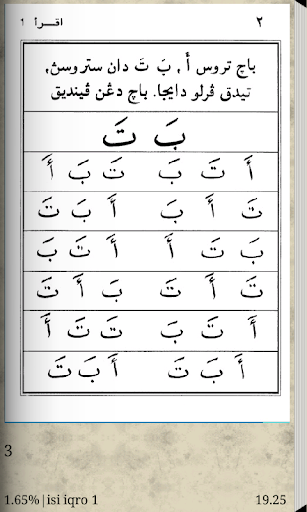 ٢ اقـــرأ ١
باچ تروس أَ , بَ تَ دان ستروسڽ,
تيدق ڤرلو دايجا. باچ دڠن ڤينديق
بَ تَ
أَ تَ بَ تَ بَ أَ
تَ أَ بَ أَ بَ تَ
بَ تَ أَ أَ تَ بَ
تَ أَ تَ بَ أَ تَ
أَ تَ بَ تَ تَ أَ
أَ بَ تَ أَ بَ تَ
3
1.65%|isi iqro 1 19.25